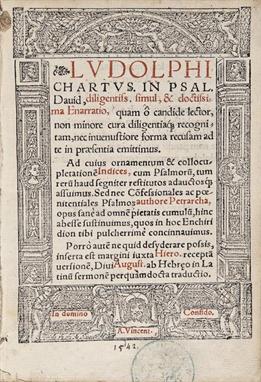 LVDOLPHI
CHARTVS. IN PSAL.
Dauid, diligentiss, simul, & doctissi
ma Enarratio, quam ô candide lector,
non minore cura diligentiaq; recogni
tam, nec inuenustiore forma recusam ad
te in præsentia emittimus.
Ad cuius ornamentum & collocu
pletationē Indices, cum Psalmorū, tum
rerū haud segniter restitutos adauctosq;
assuimus. Sed nec Cōfessionales ac pœ
nitentiales Psalmos authore Petrarcha,
opus sanè ad omnē pietatis cumulū, hinc
abesse sustinuimus, quos in hoc Enchiri
dion tibi pulcherrimè concinnauimus.
Porrò autē ne quid desyderare possis,
inserta est margini iuxta Hiero. receptā
uersionē, Diui August. ab Hebręo in La
tinū sermonē per quàm docta traductio.
In domino
Confido.
A. Vincent.
1542.